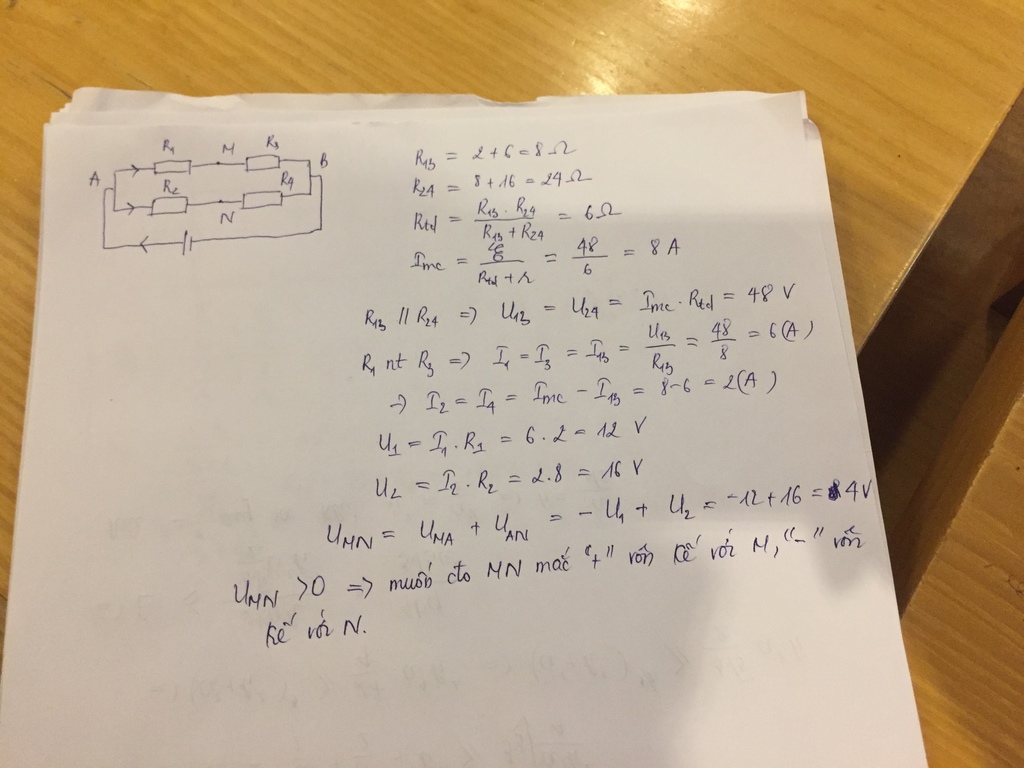 A
R1
M
R3
B
R2
N
R4
R13 = 2 + 6 = 8 Ω
R24 = 8 + 16 = 24 Ω
Rtđ = R13 . R24 / R13 + R24 = 6 Ω
Imc = ℰ / Rtđ + r = 48 / 6 = 8 A
R13 // R24 => U13 = U24 = Imc . Rtđ = 48 V
R1 nt R3 => I1 = I3 = I13 = U13 / R13 = 48 / 8 = 6 (A)
-> I2 = I4 = Imc - I13 = 8 - 6 = 2 (A)
U1 = I1 . R1 = 6 . 2 = 12 V
U2 = I2 . R2 = 2 . 8 = 16 V
UMN = UMA + UAN = - U1 + U2 = -12 + 16 = 4V
UMN > 0 => muốn đo MN mắc "+" vôn kế với M, "-" vôn
kế với N.